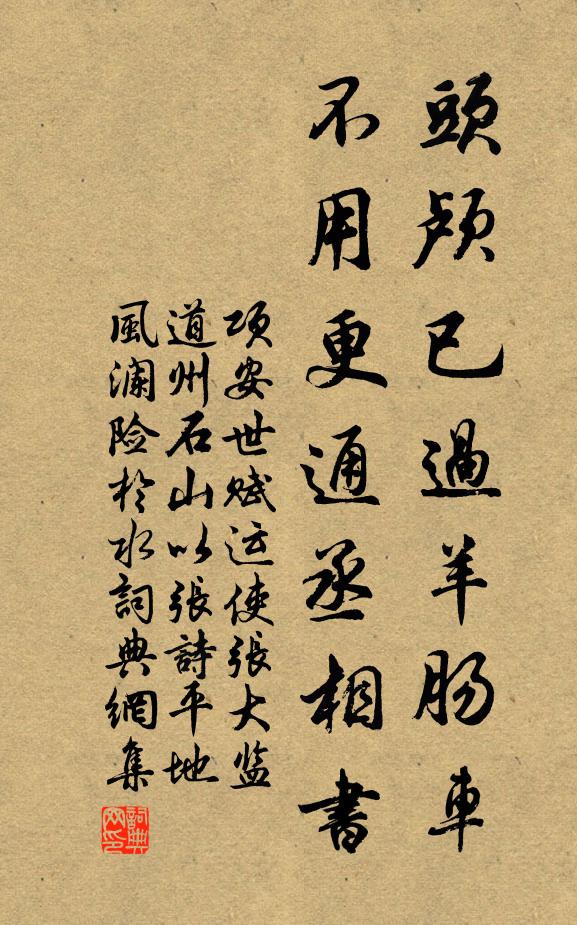 頭顱已過羊腸車
不用更通丞相書
项安世赋运使張大监
道州石山以張詩平地
風澜险於水詞典網集
詞典
网印